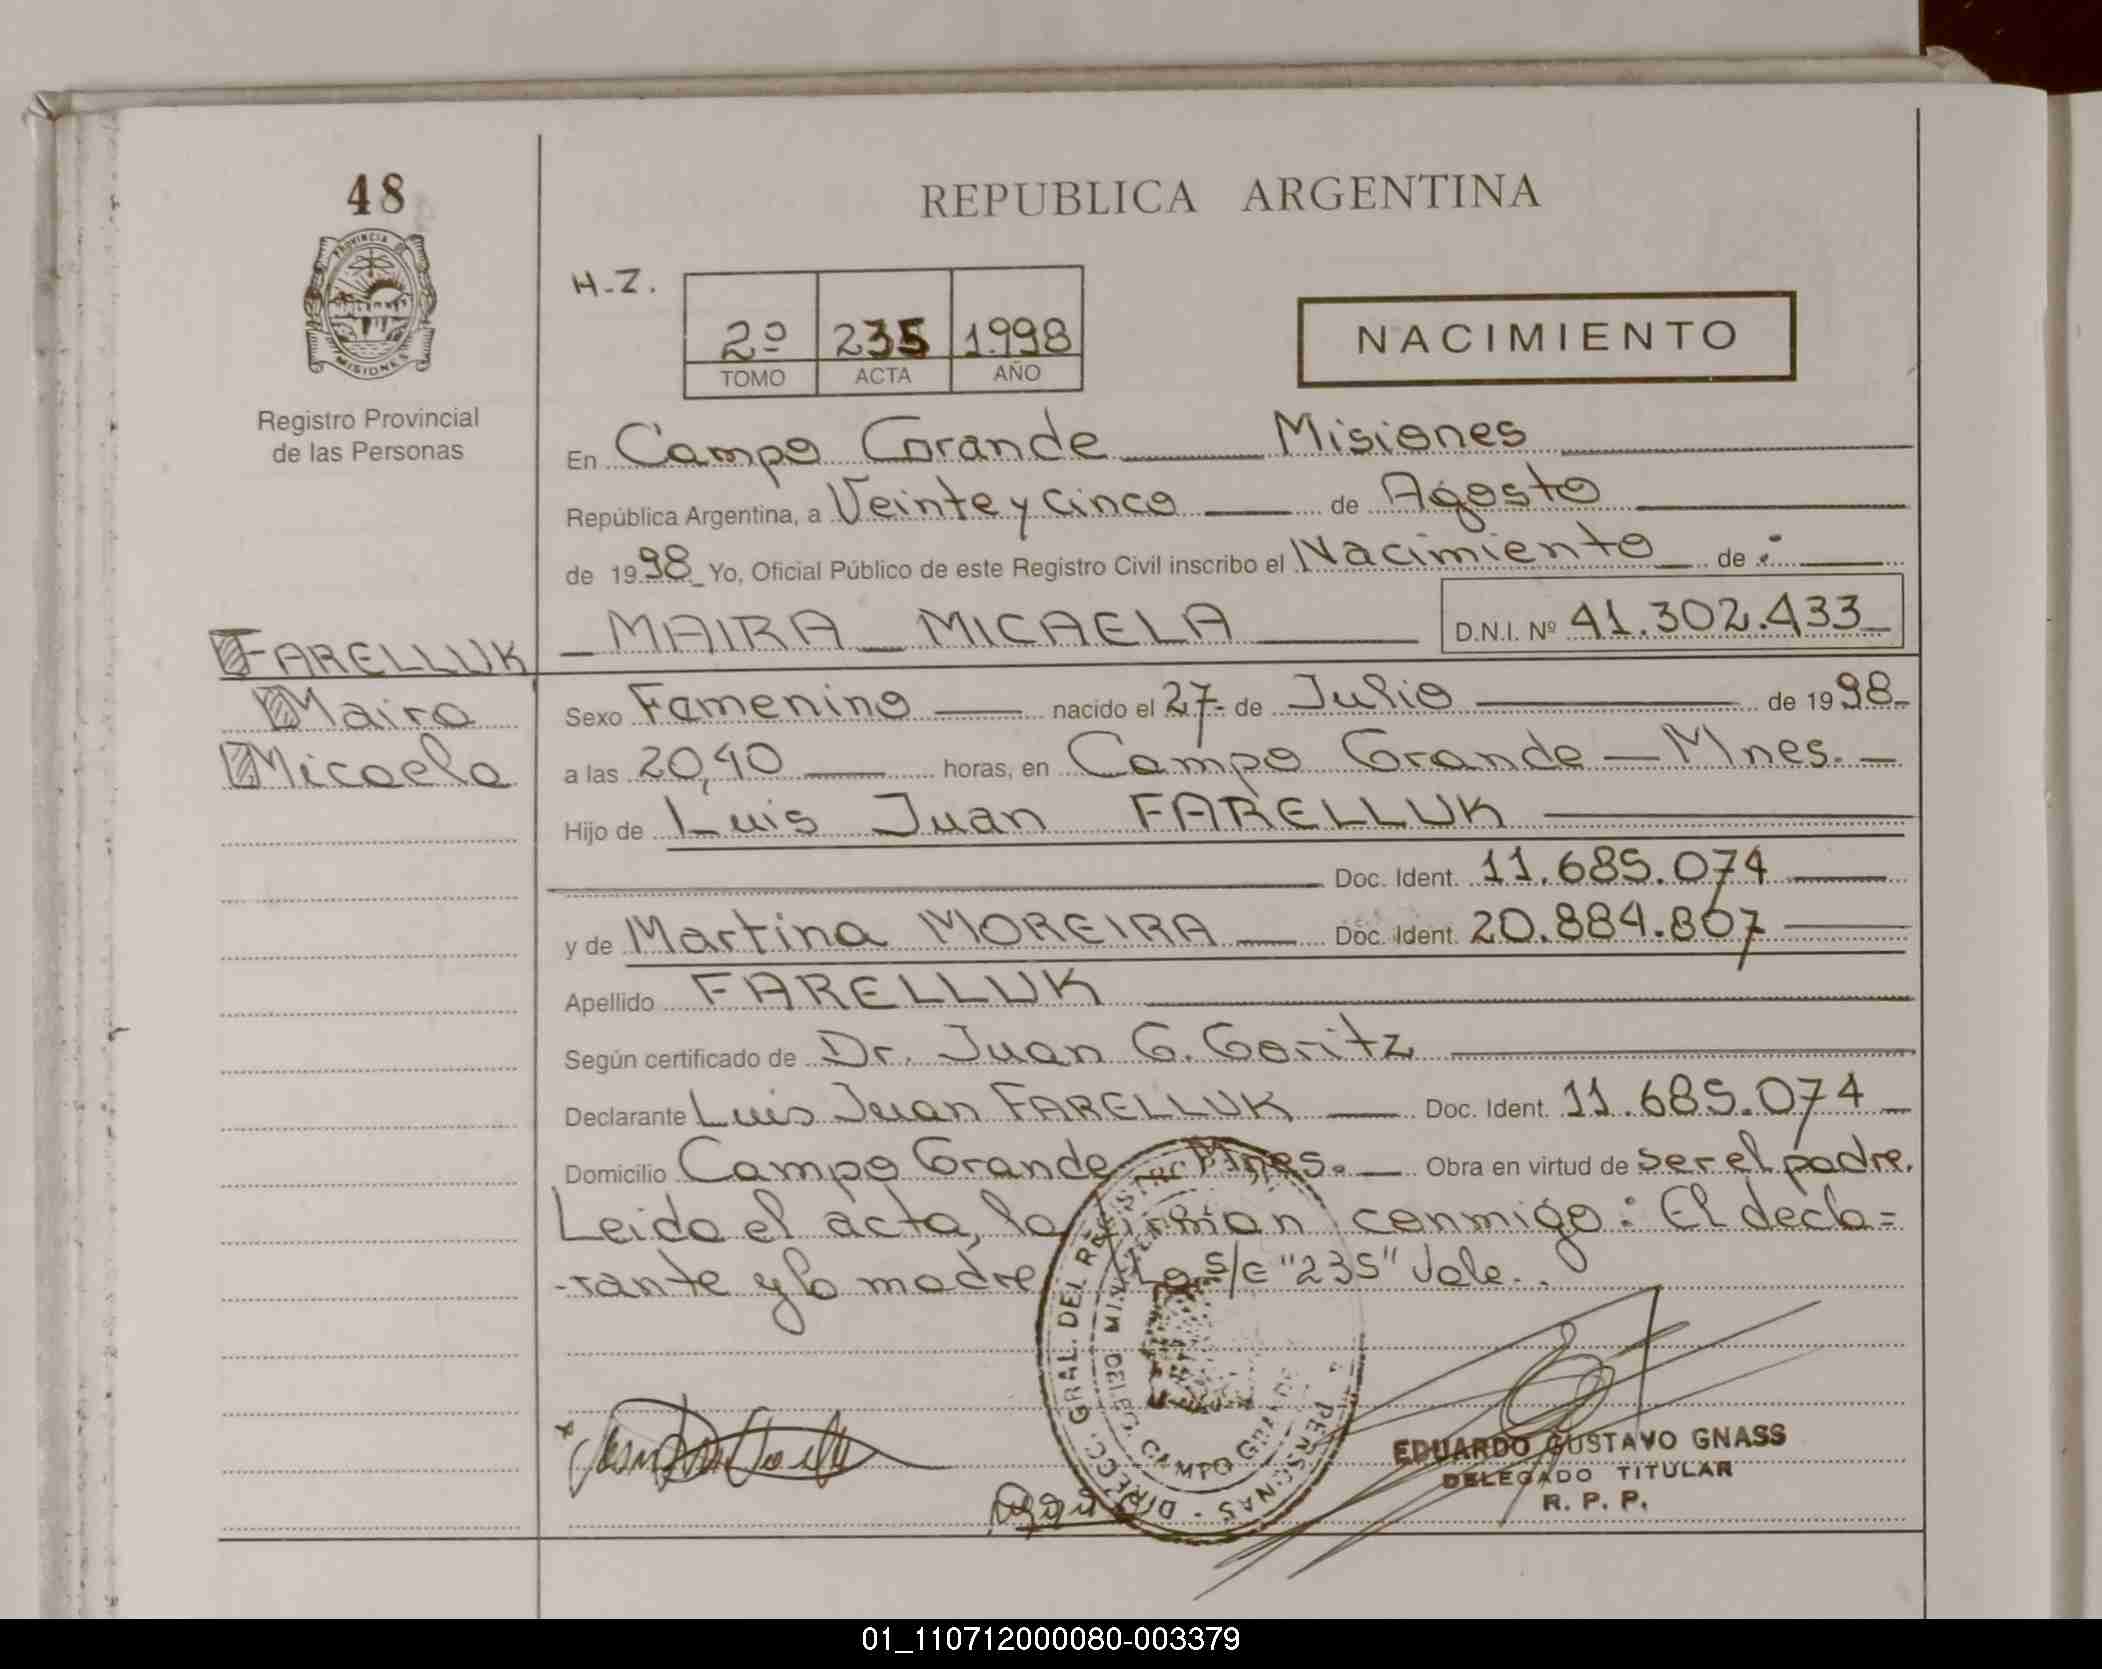 48
PROVINCIA DE
MISIONES
Registro Provincial
de las Personas
REPUBLICA ARGENTINA
H-Z.
2º 235 1.998
TOMO ACTA AÑO
NACIMIENTO
En Campo Grande Misiones
República Argentina, a Veinte y cinco de Agosto
de 1998 Yo, Oficial Público de este Registro Civil inscribo el Nacimiento de :
FARELLUK
Maira
Micaela
MAIRA MICAELA D.N.I. Nº 41.302.433
Sexo Famenino nacido el 27 de Julio de 1998
a las 20,40 horas, en Campo Grande - Mnes.
Hijo de Luis Juan FARELLUK
Doc. Ident. 11.685.074
y de Martina MOREIRA Doc. Ident. 20.884.807
Apellido FARELLUK
Según certificado de Dr. Juan G. Goritz
Declarante Luis Juan FARELLUK Doc. Ident. 11.685.074
Domicilio Campo Grande Mnes. Obra en virtud de ser el padre.
Leida el acta, la firman conmigo: El decla=
-rante y la madre Lo s/c "235" Vale.
DIRECC. GRAL. DEL REGIST. PERSONAS
DELEG. CAMPO GRANDE
EDUARDO GUSTAVO GNASS
DELEGADO TITULAR
R. P. P.
01_110712000080-003379